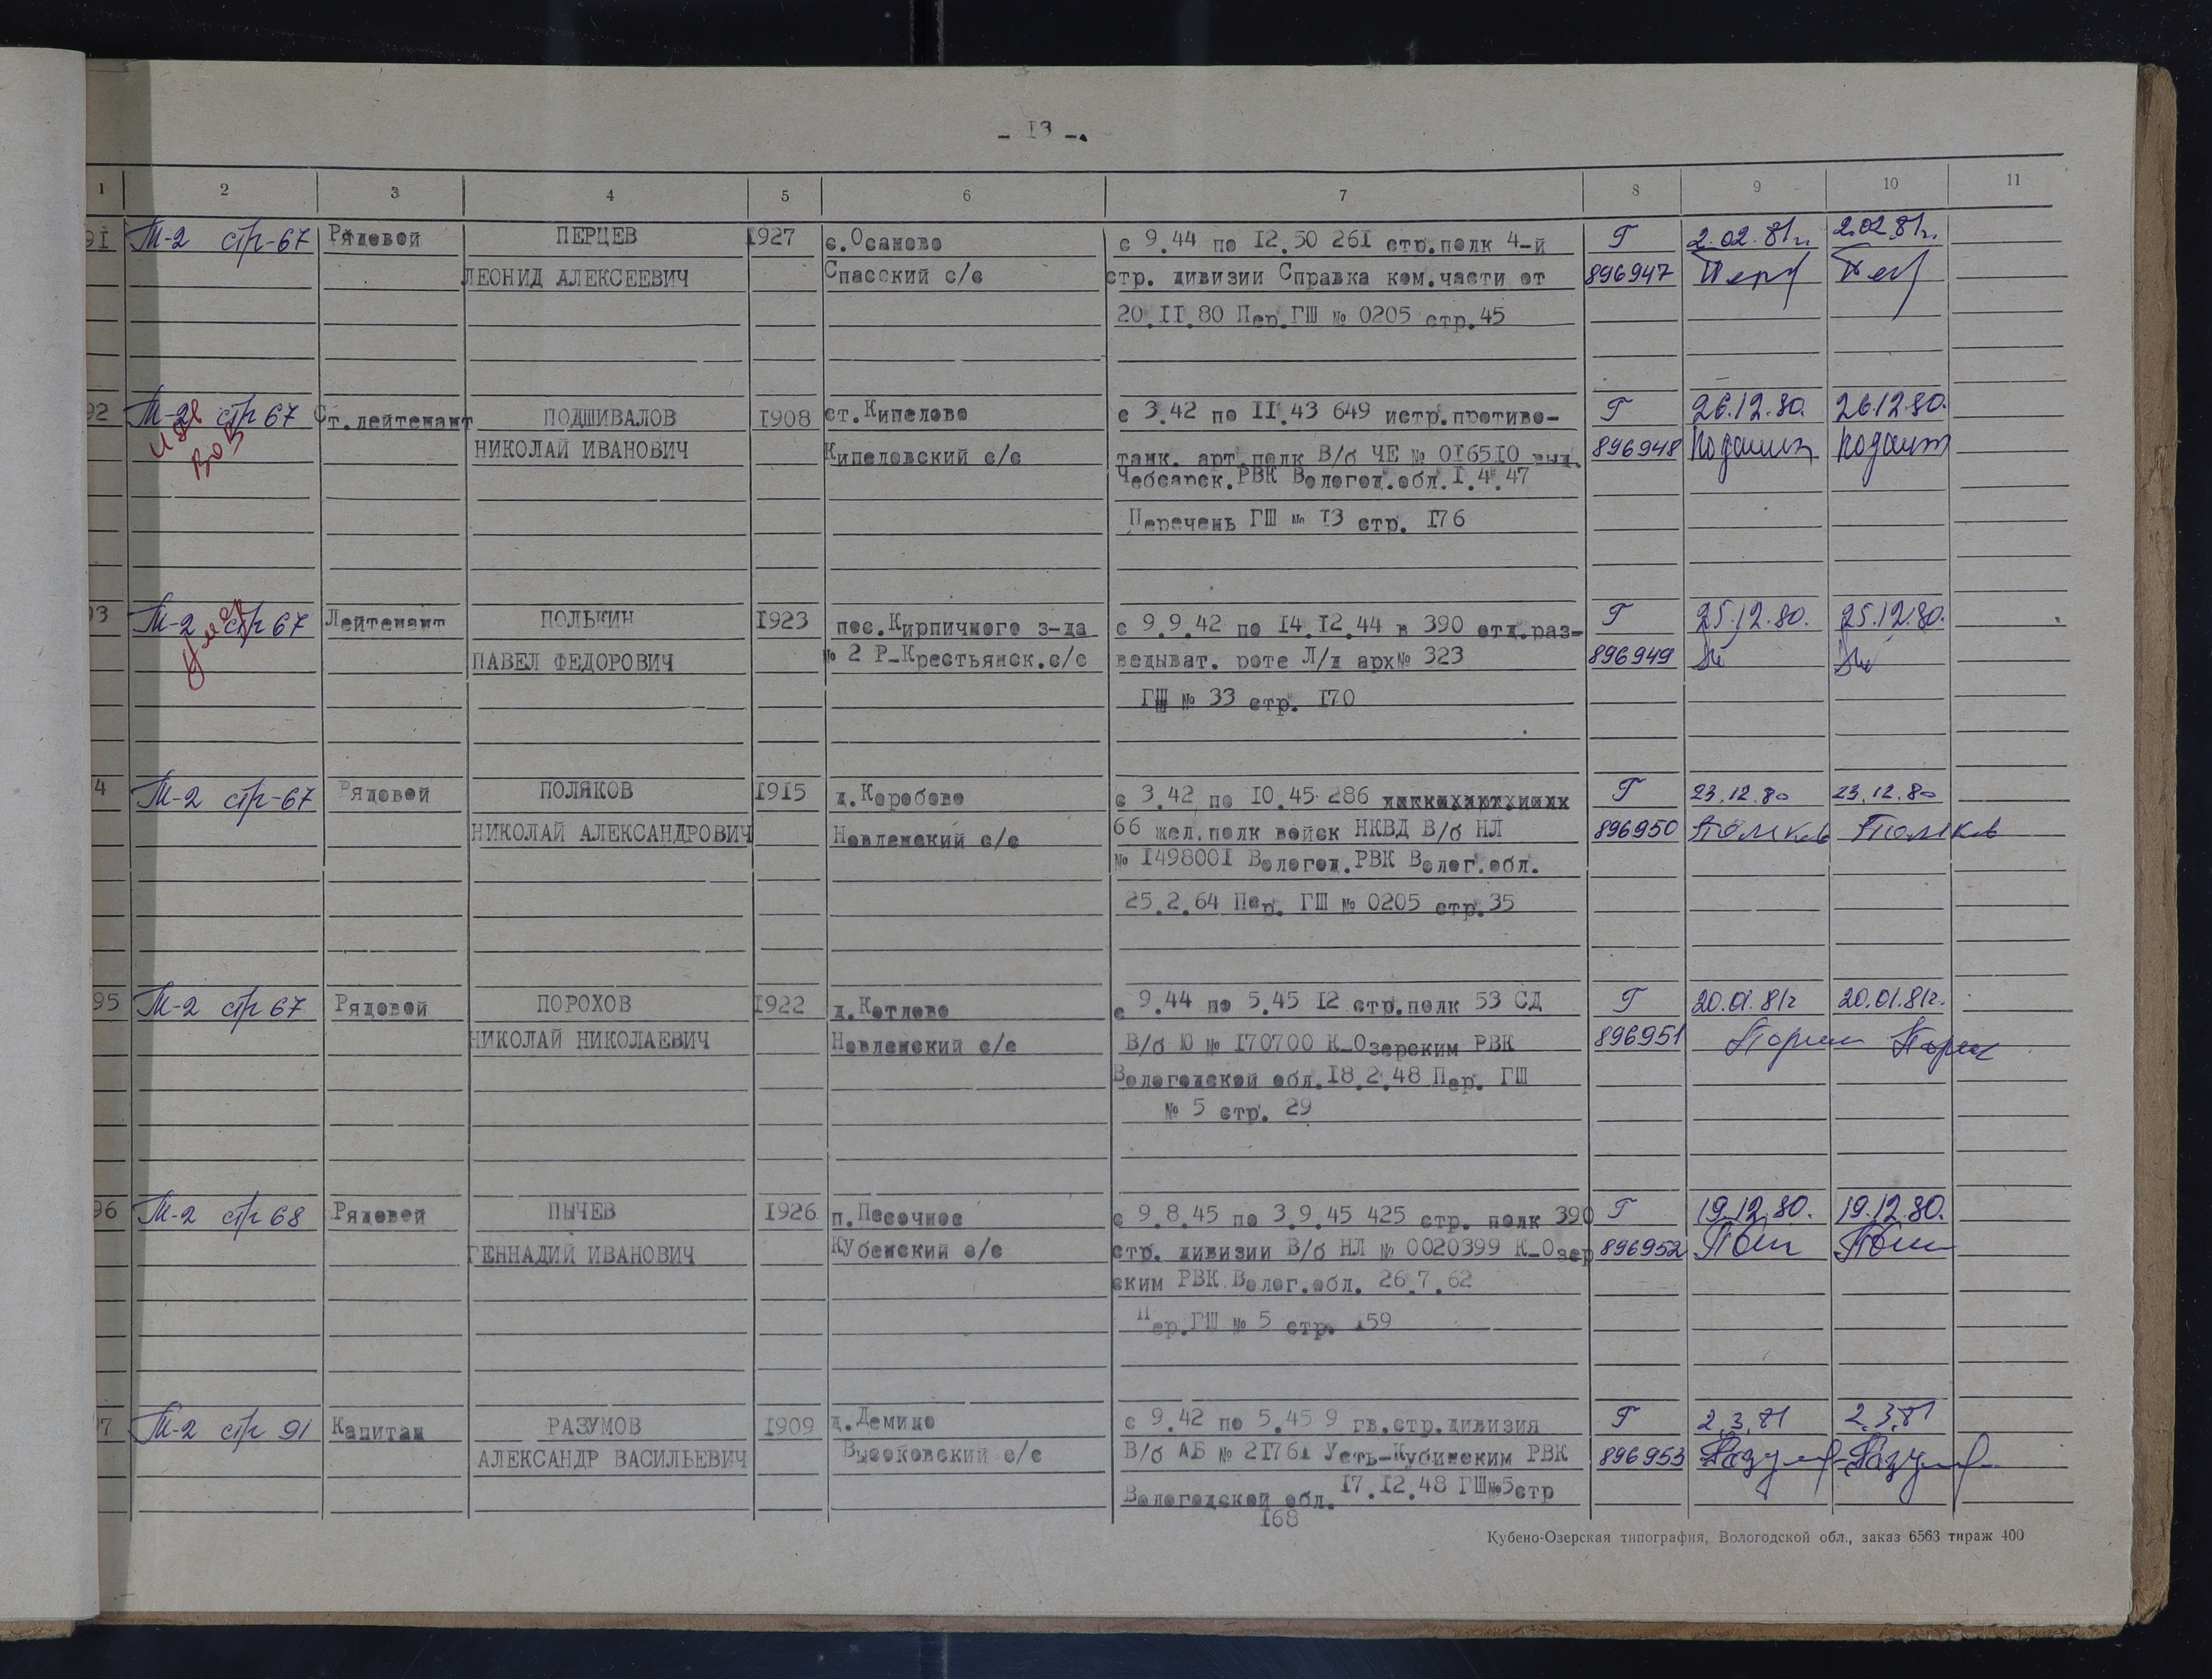 - 13 -
1 2 3 4 5 6 7 8 9 10 11
91 Т-2 стр-67 Рядовой ПЕРЦЕВ 1927 с.Осаново с 9.44 по 12.50 261 стр.полк 4-й Г 2.02.81г. 2.02.81г.
ЛЕОНИД АЛЕКСЕЕВИЧ Спасский с/с стр. дивизии Справка ком.части от 896947
20.11.80 Пер.ГШ № 0205 стр.45
92 Т-2 стр 67 Ст.лейтенант ПОДШИВАЛОВ 1908 ст.Кипелово с 3.42 по 11.43 649 истр.противо- Г 26.12.80. 26.12.80.
ИВ ВОВ НИКОЛАЙ ИВАНОВИЧ Кипеловский с/с танк. арт полк В/б ЧЕ № 016510 выд. 896948
Чебсарск.РВК Вологод.обл.1.4.47
Перечень ГШ № 13 стр. 176
93 Т-2 стр 67 Лейтенант ПОЛЬКИН 1923 пос.Кирпичного з-да с 9.9.42 по 14.12.44 в 390 отд.раз- Г 25.12.80. 25.12.80.
умер ПАВЕЛ ФЕДОРОВИЧ № 2 Р-Крестьянск.с/с ведыват. роте Л/д арх№ 323 896949
ГШ № 33 стр. 170
4 Т-2 стр-67 Рядовой ПОЛЯКОВ 1915 д.Коробово с 3.42 по 10.45 286 Г 23.12.80 23.12.80
НИКОЛАЙ АЛЕКСАНДРОВИЧ Новленский с/с 66 жел.полк войск НКВД В/б НЛ 896950 Поляков Поляков
№ 1498001 Вологод.РВК Волог.обл.
25.2.64 Пер. ГШ № 0205 стр.35
95 Т-2 стр 67 Рядовой ПОРОХОВ 1922 д.Котлово с 9.44 по 5.45 12 стр.полк 53 СД Г 20.01.81г 20.01.81г.
НИКОЛАЙ НИКОЛАЕВИЧ Новленский с/с В/б Ю № 170700 К-Озерским РВК 896951
Вологодской обл.18.2.48 Пер. ГШ
№ 5 стр. 29
96 Т-2 стр 68 Рядовой ПЫЧЕВ 1926 п.Песочное с 9.8.45 по 3.9.45 425 стр. полк 390 Г 19.12.80. 19.12.80.
ГЕННАДИЙ ИВАНОВИЧ Кубенский с/с стр. дивизии В/б НЛ № 0020399 К-Озер 896952
ским РВК Волог.обл. 26.7.62
Пер.ГШ № 5 стр. 159
97 Т-2 стр 91 Капитан РАЗУМОВ 1909 д.Демино с 9.42 по 5.45 9 гв.стр.дивизия Г 2.3.81 2.3.81
АЛЕКСАНДР ВАСИЛЬЕВИЧ Высоковский с/с В/б АБ № 21761 Усть-Кубинским РВК 896953
Вологодской обл. 17.12.48 ГШ№5стр
168
Кубено-Озерская типография, Вологодской обл., заказ 6563 тираж 400